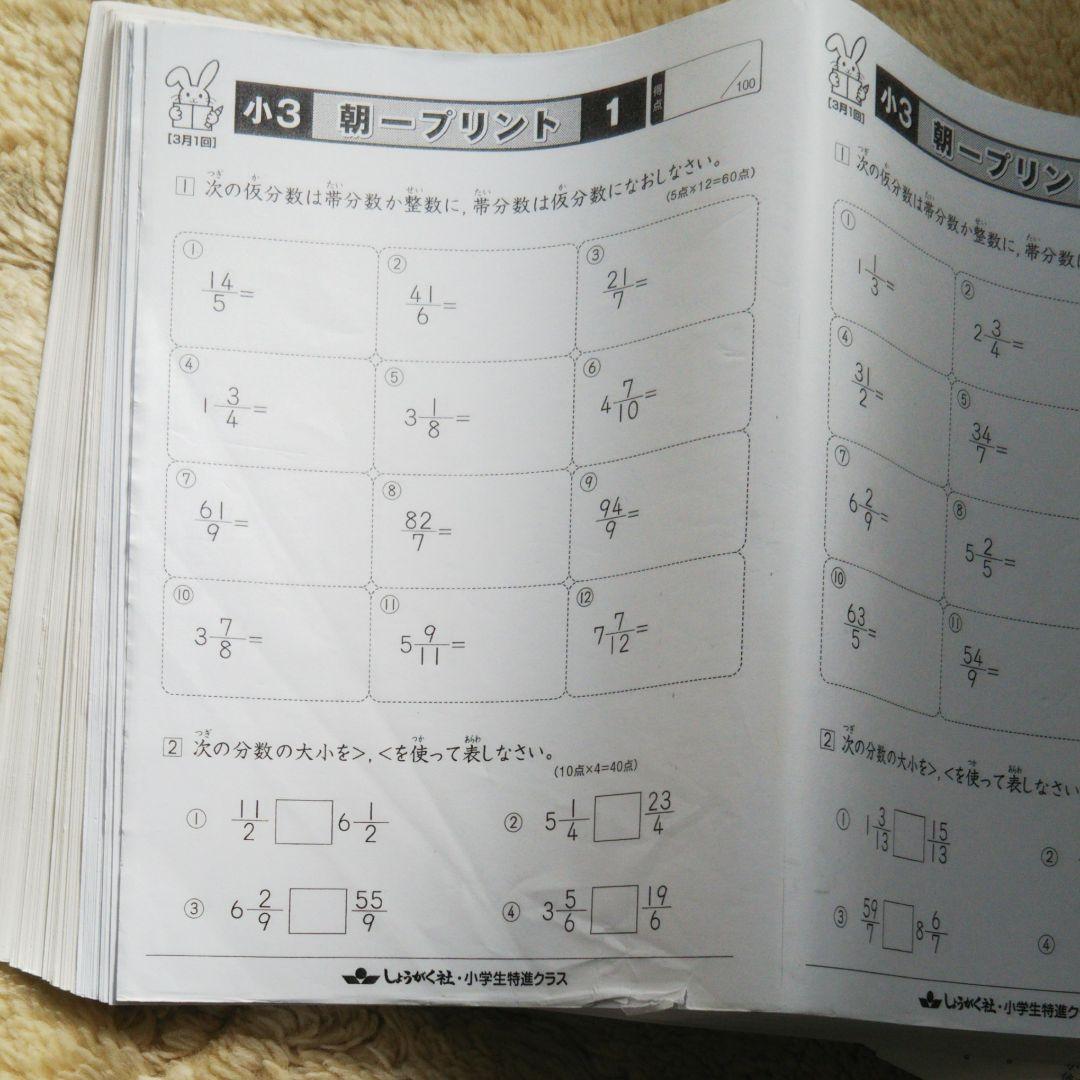 小3 朝一プリント 1 得点 /100
[3月1回]
1 次の仮分数は帯分数か整数に,帯分数は仮分数になおしなさい。
(5点×12=60点)
① 14/5= ② 41/6= ③ 21/7=
④ 1 3/4= ⑤ 3 1/8= ⑥ 4 7/10=
⑦ 61/9= ⑧ 82/7= ⑨ 94/9=
⑩ 3 7/8= ⑪ 5 9/11= ⑫ 7 7/12=
2 次の分数の大小を>,<を使って表しなさい。
(10点×4=40点)
① 11/2 □ 6 1/2 ② 5 1/4 □ 23/4
③ 6 2/9 □ 55/9 ④ 3 5/6 □ 19/6
しょうがく社・小学生特進クラス
小3 朝一プリン
[3月1回]
1 次の仮分数は帯分数か整数に,帯分数に
① 1 1/3= ② 2 3/4=
④ 31/2= ⑤ 34/7=
⑦ 6 2/9= ⑧ 5 2/5=
⑩ 63/5= ⑪ 54/9=
2 次の分数の大小を>,<を使って表しなさい
① 1 3/13 □ 15/13 ②
③ 59/7 □ 8 6/7 ④
しょうがく社・小学生特進ク